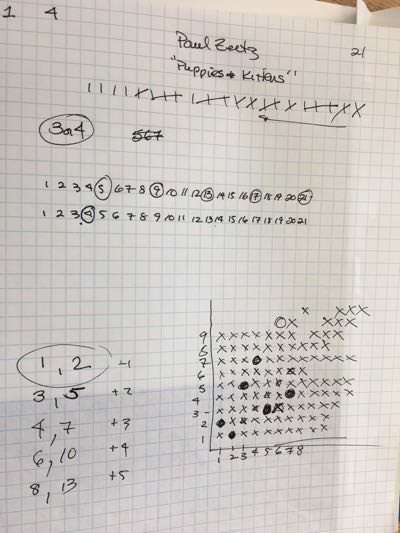 1 4
Paul Zeitz
21
"Puppies + Kittens"
3 or 4
567
1 2 3 4 5 6 7 8 9 10 11 12 13 14 15 16 17 18 19 20 21
1 2 3 4 5 6 7 8 9 10 11 12 13 14 15 16 17 18 19 20 21
1, 2 +1
3, 5 +2
4, 7 +3
6, 10 +4
8, 13 +5
9
8
7
6
5
4
3
2
1
1 2 3 4 5 6 7 8